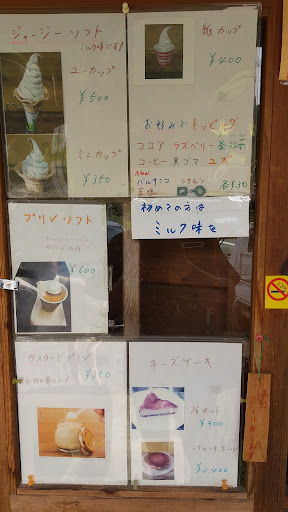 ジャージーソフト
ミルク味です!
ユーカップ
¥500
ミニカップ
¥350
紙カップ
¥400
お好みでトッピング
ココア ラズベリー
コーヒー 黒ゴマ ユズ
New
バルサミコ シナモン
各¥30
初めての方は
ミルク味を
プリンソフト
¥600
カスタードプリン
¥250
チーズケーキ
1/8カット
¥300
ホール
¥2,400